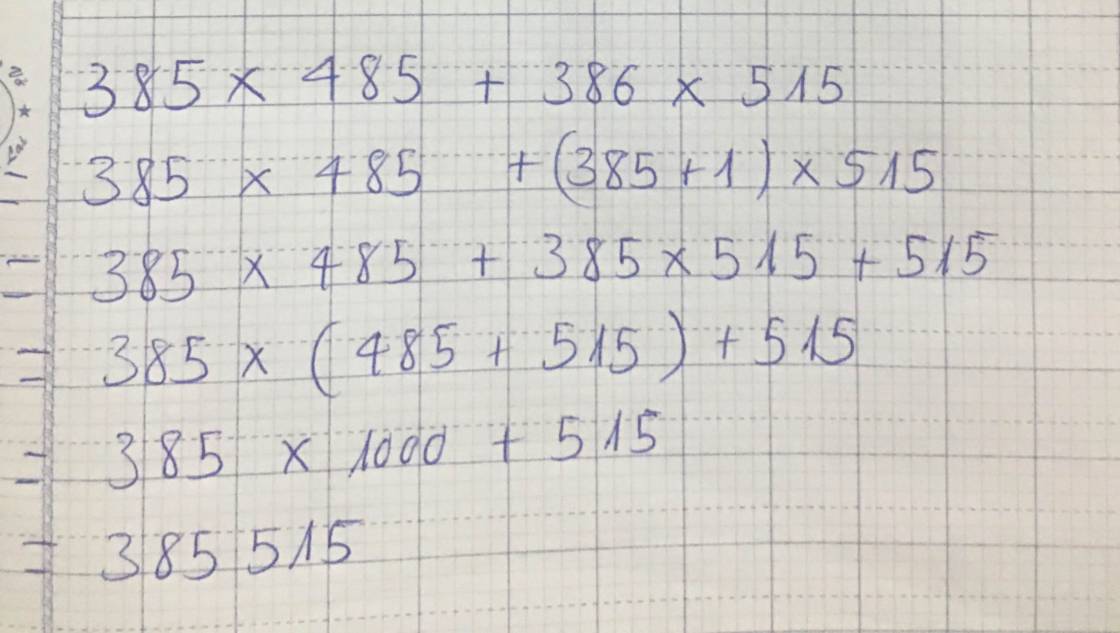 385 × 485 + 386 × 515
= 385 × 485 + (385 + 1) × 515
= 385 × 485 + 385 × 515 + 515
= 385 × (485 + 515) + 515
= 385 × 1000 + 515
= 385 515